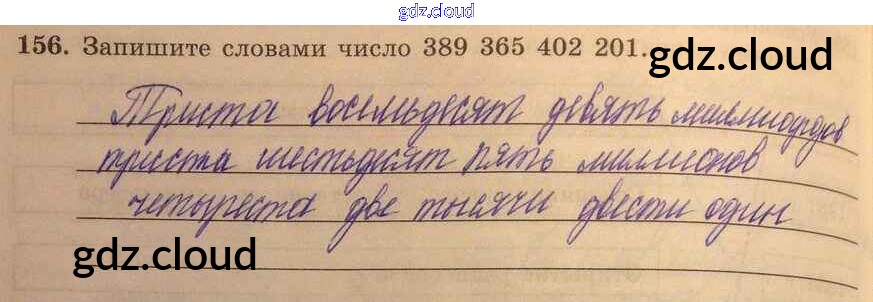 gdz.cloud
156. Запишите словами число 389 365 402 201.
gdz.cloud
Триста восемьдесят девять миллиардов
триста шестьдесят пять миллионов
четыреста две тысячи двести один
gdz.cloud